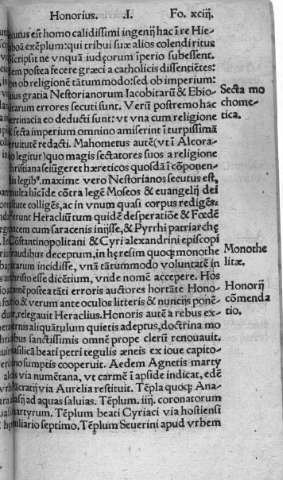 Honorius. .I. Fo. xciij.
est homo calidissimi ingenij hac ĩ re Hie-
exẽplum: qui tribui suæ alios colendi ritus
scripsit ne vnquã iudęorum ĩperio subessent.
postea fecere gręci a catholicis dissentiẽtes:
ob religionē tātummodo: sed ob imperium:
gratia Nestorianorum Iacobitarũ & Ebio-
errores secuti sunt. Verũ postremo hac
eo deducti sunt: vt vna cum religione
secta imperium omnino amiserint ĩ turpissimā
redacti. Mahometus autē (vt ĩ Alcora-
legitur) quo magis sectatores suos a religione
legibꝰ. maxime vero Nestorianos secutus est,
hicĩde cōtra legē Moseos & euangelij dei
colligēs, ac in vnum quasi corpus redigēs
Heraclium tum quidē desperatiōe & Fœde
cum saracenis inijsse, & Pyrrhi patriarchę
Cōstantinopolitani & Cyri alexandrini episcopi
fraudibus deceptum, in hęresim quoqꝫ monothe
incidisse, vnā tātummodo voluntatē in
esse dicētium, vnde nomē accepere. Hos
postea tāti erroris auctores hortāte Hono-
& verum ante oculos litteris & nuncijs ponē-
relegauit Heraclius. Honoris autē a rebus ex-
aliquātulum quietis adeptus, doctrina mo
sanctissimis omnē prope clerũ renouauit.
beati petri tegulis æneis ex ioue capito-
sumptis cooperuit. Aedem Agnetis marty
via numētana, vt carmē ĩ apside indicat, edē
via Aurelia restituit. Tēpla quoqꝫ Ana-
ad aquas saluias. Tēplum. iiij. coronatorum
martyrum. Tēplum beati Cyriaci via hostiensi
septimo. Tēplum Seuerini apud vrbem
Secta mo
chome-
tica.
Monothe
litæ.
Honorij
cōmenda
tio.